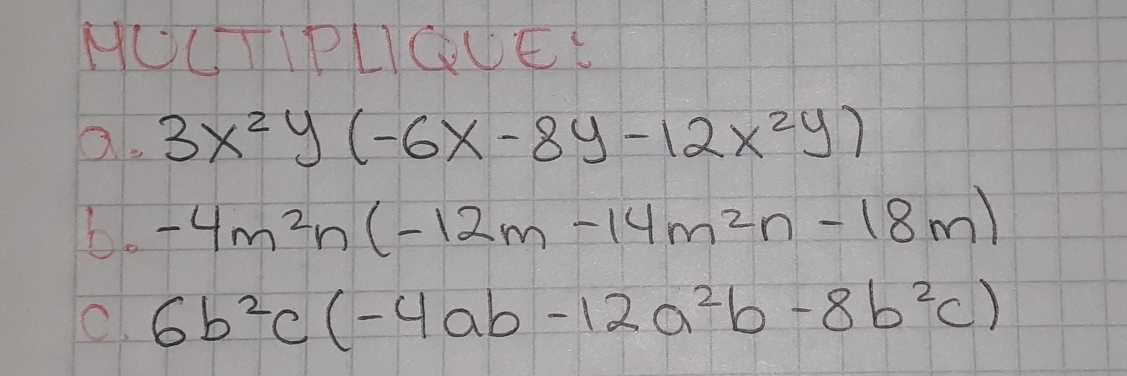 MULTIPLIQUE:
a. 3x²y (-6x - 8y - 12x²y)
b. -4m²n (-12m - 14m²n - 18m)
c. 6b²c (-4ab - 12a²b - 8b²c)